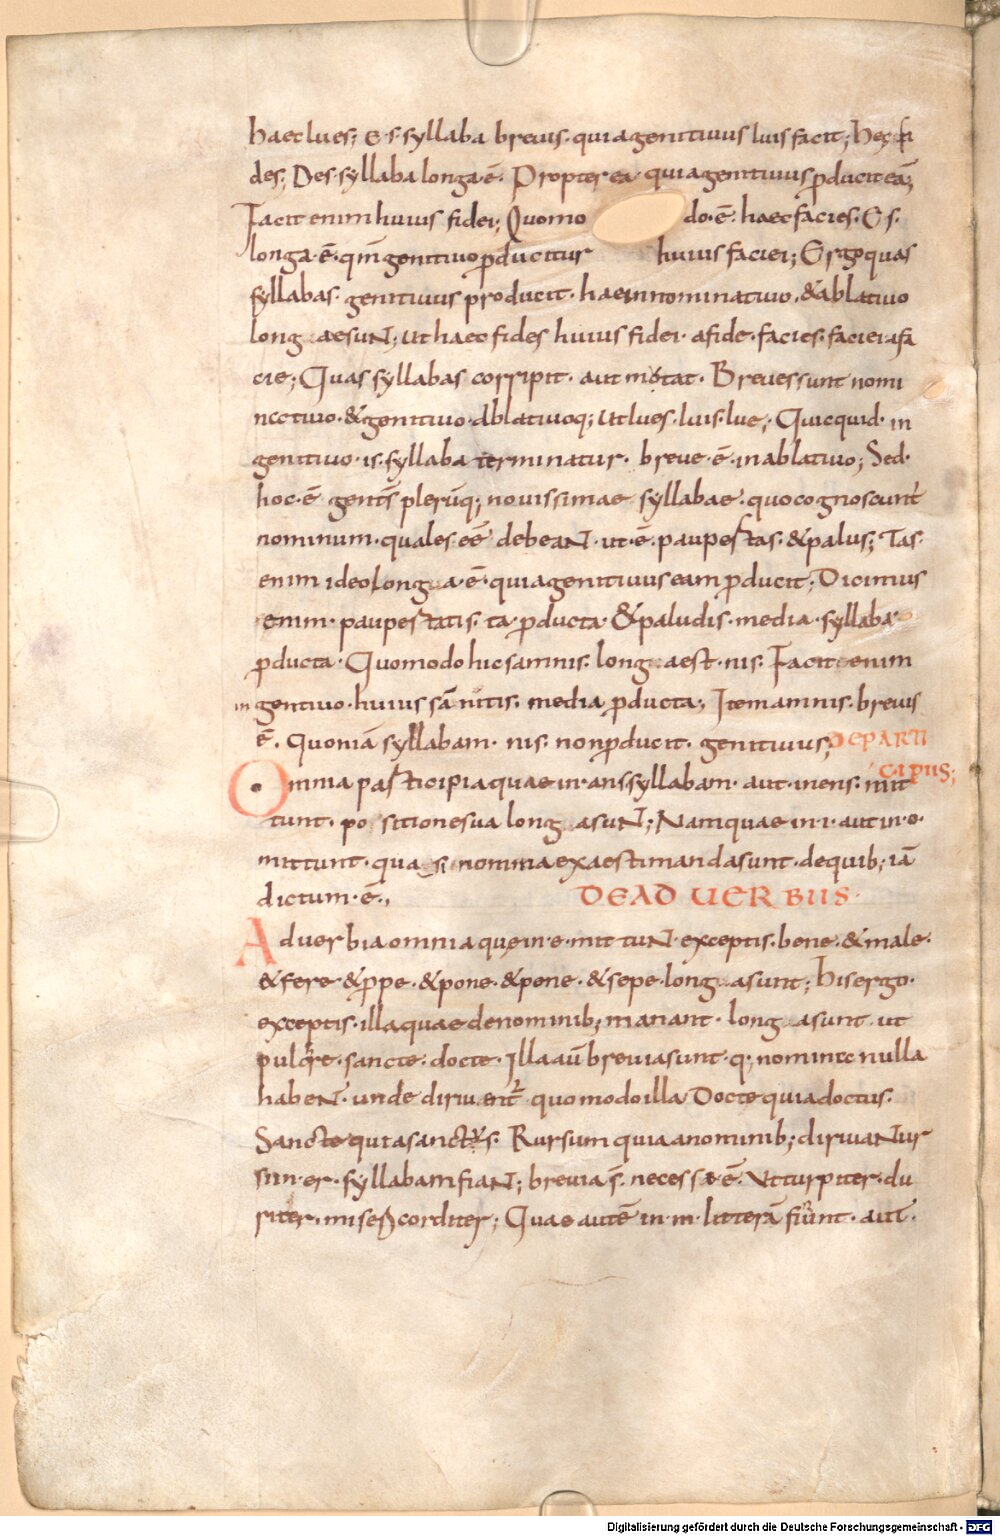 haec lues; E·s· syllaba breuis· quia genitiuus luis facit; Hec fi
des; Des· syllaba longa·ē· Propter ea· quia genitiuus ꝓducit eā;
Facit enim huius fidei; Quomo do·ē· haec facies· E s·
longa·ē· qm̄ genitiuo ꝓducitur huius faciei; Ergo quas
syllabas· genitiuus producit· hae in nominatiuo· & ablatiuo
long aesunt; ut haec fides huius fidei· a fide· facies· faciei· a fa
cie; Quas syllabas corripit· aut motat· Breues sunt nomi
natiuo· & genitiuo· ablatiuoq; ut lues· luis· lue; Quicquid· in
genitiuo· is· syllaba terminatur· breue·ē· in ablatiuo; Sed·
hoc·ē· gent̄s plerūq; nouissimae syllabae· quo cognoscunt'
nominum· quales eē debeant· ut·ē· paupertas· & palus; Tas·
enim ideo longa·ē· quia genitiuus eam ꝓducit; Dicimus
enim· paupertatis· ta· ꝓducta· & paludis· media· syllaba·
ꝓducta· Quomodo hic samnis· long aest· nis· Facit enim
in genitiuo· huius sānitis· media ꝓducta; Item amnis· breuis
ē· Quoniā syllabam· nis· non ꝓducit· genitiuus; DE PARTI
CIPIIS;
Omnia participia quae in· ans· syllabam· aut· in ens· mit
tunt· po sitione sua long a sunt; Nam quae in· i· aut in·o·
mittunt· qua si nomina exaestimanda sunt· de quib; iā
dictum·ē·, DE AD UERBIIS·
Aduerbia omnia que in·e· mittunt· exceptis· bene· & male·
& fere· & ꝓpe· & pone· & pene· & sepe· long a sunt; His ergo·
exceptis· illa quae de nominib; manant· long a sunt· ut
pulchre· sancte· docte· Illa aū breuia sunt· q; nomina nulla
habent· unde diriuent' quomodo illa Docte quia doctus·
Sancte quia sanctus· Rursum quia a nominib; diriuantur
si in·er· syllabam fiant; breuia s̄· necesse·ē· Ut turpiter· du
riter· misericorditer; Quae autē in· m· litterā fiunt· aut·
Digitalisierung gefördert durch die Deutsche Forschungsgemeinschaft - DFG